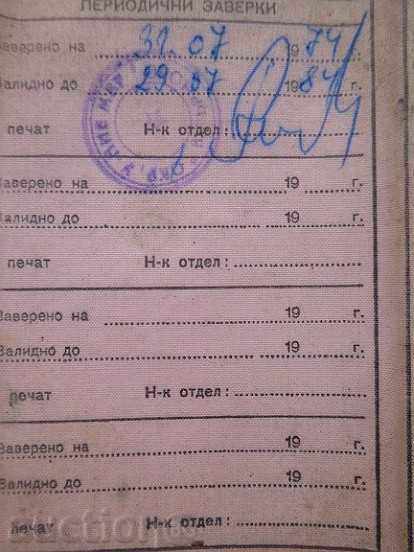 ПЕРИОДИЧНИ ЗАВЕРКИ
Заверено на 31.07 1974 г.
Валидно до 29.07 1984 г.
печат Н-к отдел:
Заверено на 19 г.
Валидно до 19 г.
печат Н-к отдел:
Заверено на 19 г.
Валидно до 19 г.
печат Н-к отдел:
Заверено на 19 г.
Валидно до 19 г.
печат Н-к отдел: